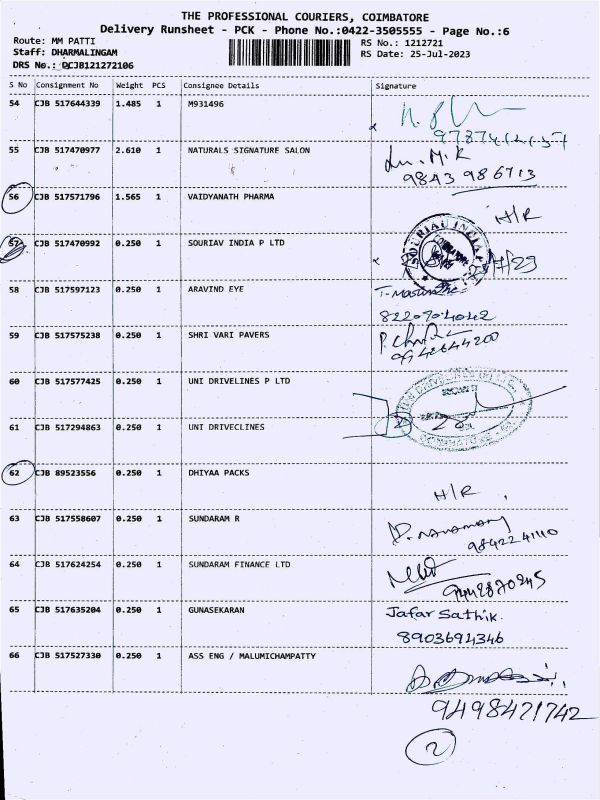 THE PROFESSIONAL COURIERS, COIMBATORE
Delivery Runsheet - PCK - Phone No.:0422-3505555 - Page No.:6
Route: MM PATTI RS No.: 1212721
Staff: DHARMALINGAM RS Date: 25-Jul-2023
DRS No.: DCJB121272106
S No Consignment No Weight PCS Consignee Details Signature
54 CJB 517644339 1.485 1 M931496
55 CJB 517470977 2.610 1 NATURALS SIGNATURE SALON
9843 986713
56 CJB 517571796 1.565 1 VAIDYANATH PHARMA
H/R
57 CJB 517470992 0.250 1 SOURIAV INDIA P LTD
58 CJB 517597123 0.250 1 ARAVIND EYE
8220704042
59 CJB 517575238 0.250 1 SHRI VARI PAVERS
9942644200
60 CJB 517577425 0.250 1 UNI DRIVELINES P LTD
61 CJB 517294863 0.250 1 UNI DRIVECLINES
62 CJB 89523556 0.250 1 DHIYAA PACKS
H/R
63 CJB 517558607 0.250 1 SUNDARAM R
64 CJB 517624254 0.250 1 SUNDARAM FINANCE LTD
65 CJB 517635204 0.250 1 GUNASEKARAN
Jafar Sathik.
8903694346
66 CJB 517527330 0.250 1 ASS ENG / MALUMICHAMPATTY
9498421742
2